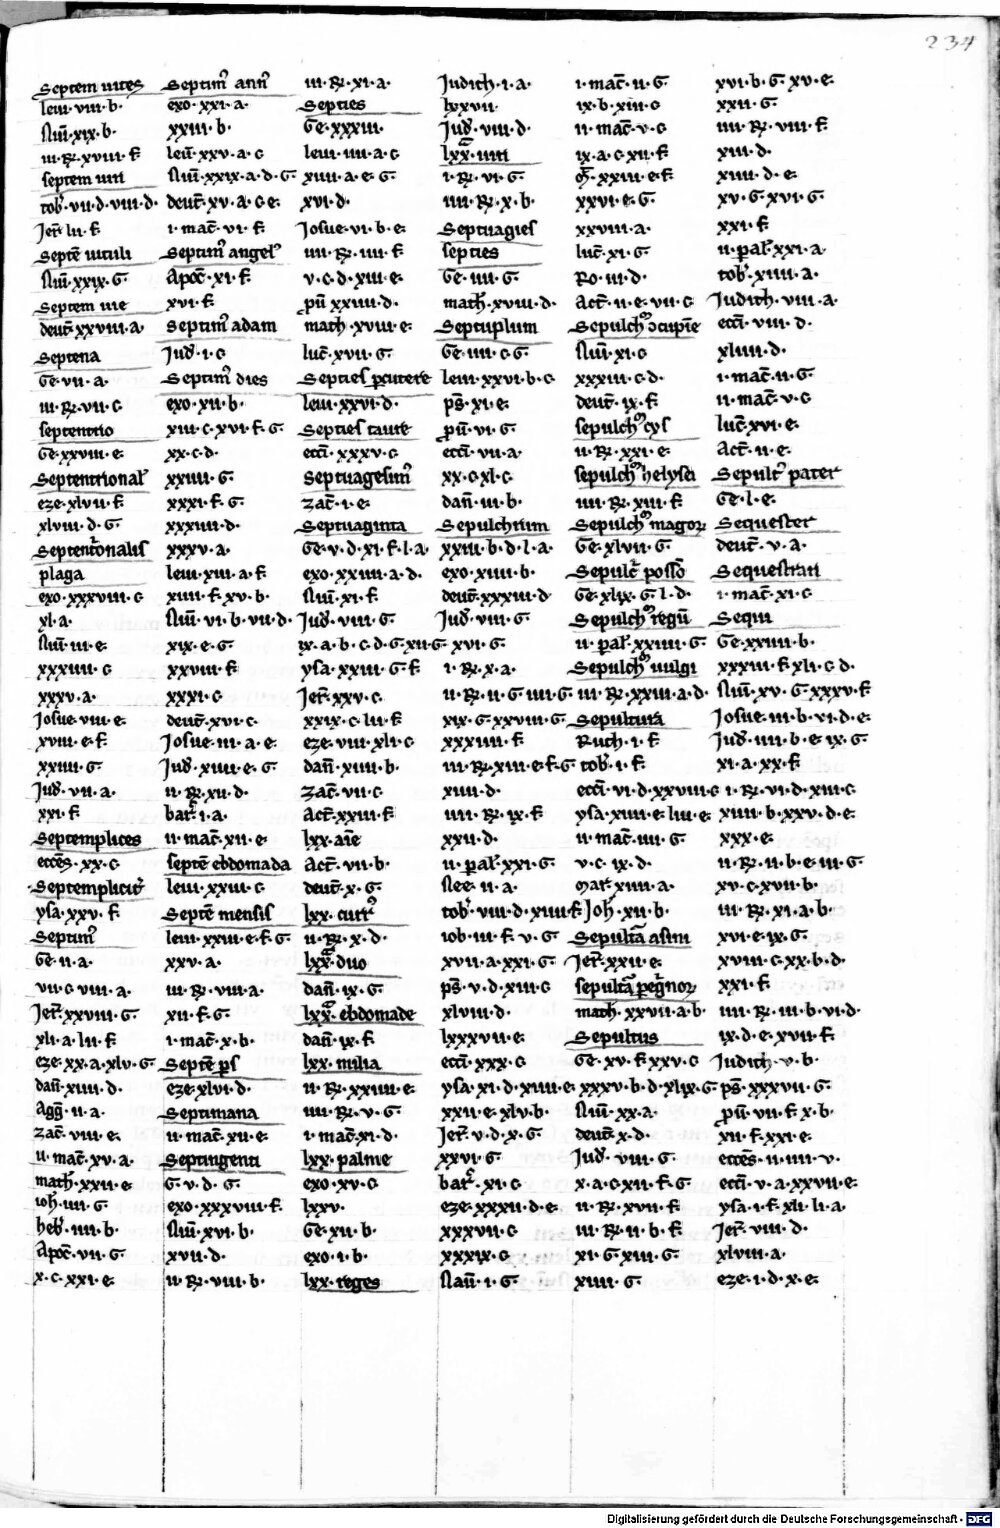 234
Septem uites
leui·viii·b·
Nu̅·xix·b·
iii·R·xviii·f
septem uiri
tob·vii·d·viii·d·
Jer·lii·f
Septe̅ uituli
Nu̅·xxix·G·
Septem uie
deut·xxviii·a
Septena
Ge·vii·a·
iii·R·vii·c
septentrio
Ge·xxviii·e·
Septentrional
eze·xlvii·f·
xlviii·d·G·
Septentronalis
plaga
exo·xxxviii·c
xl·a·
Nu̅·iii·e·
xxxiiii·c
xxxv·a·
Josue·viii·e·
xviii·e·f·
xxiiii·G·
Jud·vii·a·
xxi·f
Septemplices
ecces·xx·c
Septemplicit
ysa·xxv·f
Septim
Ge·ii·a·
vii·c·viii·a·
Jer·xxviii·G·
xli·a·lii·f
eze·xx·a·xlv·G·
dan·xiiii·d·
Agg·ii·a·
zac·viii·e·
ii·mac·xv·a·
math·xxii·e·
ioh·iiii·G·
heb·iiii·b·
Apoc·vii·G·
x·c·xxi·e·
Septim ann
exo·xxi·a·
xxiii·b·
leui·xxv·a·c
Nu̅·xxix·a·d·G
deut·xv·a·c·e·
i·mac·vi·f
Septim angel
Apoc·xi·f·
xvi·f
Septim adam
Jud·i·c
Septim dies
exo·xii·b·
xiii·c·xvi·f·G·
xx·c·d·
xxiiii·G·
xxxi·f·G·
xxxiiii·d·
xxxv·a·
leui·xiii·a·f·
xiiii·f·xv·b·
Nu̅·vi·b·vii·d·
xix·e·G·
xxviii·f
xxxi·c
deut·xvi·c·
Josue·iii·a·e·
Jud·xiiii·e·G·
ii·R·xii·d·
bar·i·a·
ii·mac·xii·e·
septe̅ ebdomada
leui·xxiii·c
Septe̅ mensis
leui·xxiii·e·f·G·
xxv·a·
iii·R·viii·a·
xii·f·G·
i·mac·x·b·
Septe̅ ps
eze·xlvi·d·
Septimana
ii·mac·xii·e·
Septingenti
G·v·d·G·
exo·xxxviii·f·
Nu̅·xvi·b·
xvii·d·
ii·R·viii·b·
iii·R·xi·a·
Septies
Ge·xxxiii·
leui·iiii·a·c
xiiii·a·e·G·
xvi·d·
Josue·vi·b·e·
iiii·R·iiii·f
v·c·d·xiii·e·
pu̅·xxiiii·d·
math·xviii·e·
luc·xvii·G·
Septies pcutere
leui·xxvi·d·
Septies taure
ecci·xxxv·c
Septuagesim
zac·i·e·
Septuaginta
Ge·v·d·xi·f·l·a·
exo·xxiiii·a·d·
Nu̅·xi·f·
Jud·viii·G·
ix·a·b·c·d·G·xii·G·
ysa·xxiii·G·f
Jer·xxv·c·
xxix·c·lii·f
eze·viii·xli·c
dan·xiiii·b·
zac·vii·c
Act·xxiii·f
lxx·aie
Act·vii·b·
deut·x·G·
lxx·curr
ii·R·x·d·
lxx·duo
dan·ix·G·
lxx·ebdomade
dan·ix·f
lxx·milia
ii·R·xxiiii·e·
iiii·R·v·G·
i·mac·xi·d·
lxx·palme
exo·xv·c
lxxv·
Ge·xii·b·
exo·i·b·
lxx·reges
Judith·i·a·
lxxvii·
Jud·viii·d·
lxx·uiri
i·R·vi·G·
iiii·R·x·b·
Septuagies
septies
Ge·iiii·G·
math·xviii·d·
Septuplum
Ge·iiii·c·G·
leui·xxvi·b·c
ps·xi·e·
pu̅·vi·G·
ecci·vii·a·
xx·c·xl·c·
dan·iii·b·
Sepulchrum
xxiii·b·d·l·a·
exo·xiiii·b·
deut·xxxiii·d
Jud·viii·G·
xvi·G·
i·R·x·a·
ii·R·ii·G·iiii·G·
xix·G·xxviii·G·
xxxiiii·f·
iii·R·xiii·e·f·G
xiiii·d·
iiii·R·ix·f
xxii·d·
ii·pal·xxi·G·
Nee·ii·a·
tob·viii·d·xiiii·f
iob·iii·f·v·G·
xvii·a·xxi·G·
ps·v·d·xiii·c
xlviii·d·
lxxxvii·e·
ecci·xxx·c
ysa·xi·d·xiiii·e
xxii·e·xlv·b·
Jer·v·d·x·G·
xxvi·G
bar·xi·c
eze·xxxii·d·e·
xxxvii·c
xxxix·c
Nau̅·i·G·
i·mac·ii·G·
ix·b·xiii·c
ii·mac·v·c
ix·a·c·xii·f
xxiii·e·f·
xxvi·e·G·
xxviii·a·
luc·xi·G·
Ro·iii·d·
Act·ii·e·vii·c
Sepulch ɔcupie
Nu̅·xi·c
xxxiii·c·d·
deut·ix·f
sepulch cys
ii·R·xxi·e·
sepulch helysei
iiii·R·xiii·f
Sepulch magor
Ge·xlvii·G·
Sepulc posso
Ge·xlix·G·l·d·
Sepulch regu̅
ii·pal·xxiiii·G·
Sepulch uulgi
iii·R·xxiii·a·d·
Sepultura
Ruth·i·f·
tob·i·f·
ecci·vi·d·xxviii·c
ysa·xiiii·e·liii·e·
ii·mac·iiii·G·
v·c·ix·d·
mar·xiiii·a·
Joh·xii·b·
Sepulta asini
Jer·xxii·e·
sepulta pegnor
math·xxvii·a·b
Sepultus
Ge·xv·f·xxv·c
xxxv·b·d·xlix·G
Nu̅·xx·a·
deut·x·d·
Jud·viii·G·
x·a·c·xii·f·G
ii·R·xvii·f
iii·R·ii·b·f·
xi·G·xiii·G·
xiiii·G·
xvi·b·G·xv·e·
xxii·G·
iiii·R·viii·f
xiii·d·
xiiii·d·e·
xv·G·xvi·G·
xxi·f
ii·pal·xxi·a·
tob·xiiii·a·
Judith·viii·a·
ecci·viii·d·
xliiii·d·
i·mac·ii·G·
ii·mac·v·c
luc·xvi·e·
Act·ii·e·
Sepult pater
Ge·l·e·
Sequester
deut·v·a·
Sequestrari
i·mac·xi·c
Sequi
Ge·xxiiii·b·
xxxiii·f·xli·c·d·
Nu̅·xv·G·xxxv·f
Josue·iii·b·vi·d·e·
Jud·iiii·b·e·ix·G·
xi·a·xx·f
i·R·vi·d·xiii·c
xiiii·b·xxv·d·e·
xxx·e·
ii·R·ii·b·e·iii·G·
xv·c·xvii·b·
iii·R·xi·a·b·
xvi·e·ix·G·
xviii·c·xx·b·d·
xxi·f
iiii·R·iii·b·vi·d·
ix·d·e·xvii·f
Judith·v·b·
ps·xxxvii·G·
pu̅·vii·f·x·b·
xii·f·xxi·e·
ecces·ii·iiii·v·
ecci·v·a·xxvii·e·
ysa·i·f·xli·li·a·
Jer·viii·d·
xlviii·a·
eze·i·d·x·e·
Digitalisierung gefördert durch die Deutsche Forschungsgemeinschaft - DFG